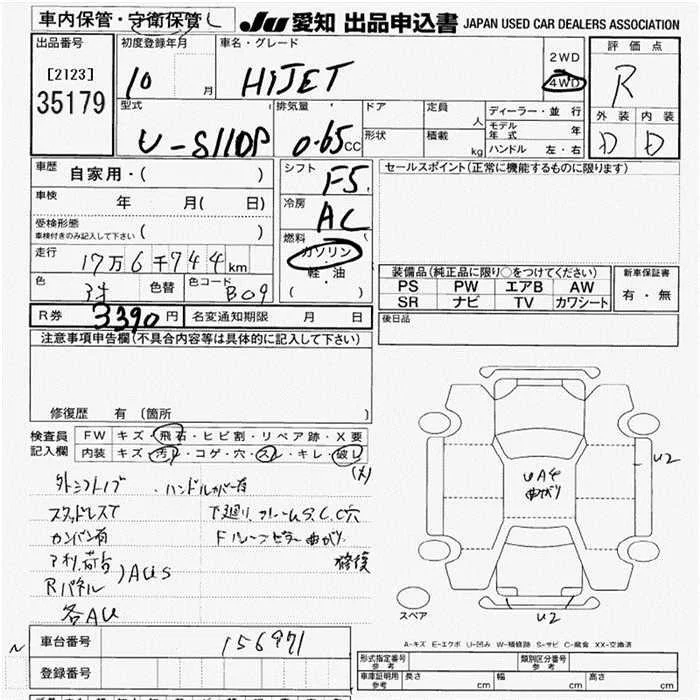 車内保管・守衛保管 し
JU 愛知 出品申込書 JAPAN USED CAR DEALERS ASSOCIATION
出品番号
[2123]
35179
初度登録年月
10 月
車名・グレード
HiJET
2WD
4WD
評価点
R
外装 内装
D D
型式
U-S110P
排気量
0.65 cc
ドア
定員 人
形状
積載 kg
ディーラー・並行
モデル年式 年
ハンドル 左・右
車歴 自家用・( )
車検 年 月( 日)
受検形態
車検付きのみ記入して下さい ( )
走行 17万6千744km
色
色替
色コード B09
シフト F5
冷房 AC
燃料
ガソリン
・
軽油
・
( )
セールスポイント(正常に機能するものに限ります)
装備品(純正品に限り○をつけてください)
PS PW エアB AW
SR ナビ TV カワシート
新車保証書
有・無
R券 3390円 名変通知期限 月 日
後日品
注意事項申告欄(不具合内容等は具体的に記入して下さい)
修復歴 有 (箇所 )
検査員記入欄
FW キズ・飛石・ヒビ割・リペア跡・X要
内装 キズ・汚れ・コゲ・穴・スレ・キレ・破れ
(大)
外シフトノブ ・ハンドルカバー有
スタッドレスT 下廻り、フレームS.C.C穴
カンバン有 Fルーフピラー曲がり
修復
アオリ、荷台 )AUS
Rパネル
各AU
UA4
曲がり
U2
U2
スペア
A-キズ E-エクボ U-凹み W-補修跡 S-サビ C-腐食 XX-交換済
車台番号 156971
登録番号
形式指定番号 参考
類別区分番号 参考
車庫証明用 参考 長さ cm 幅 cm 高さ cm